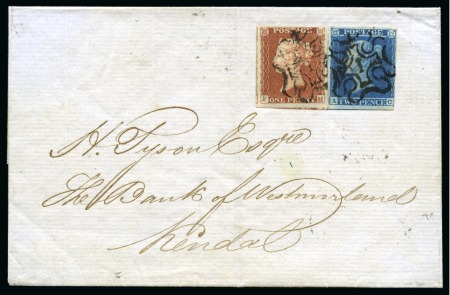 POSTAGE POSTAGE
ONE PENNY TWO PENCE
H. Tyson Esqre
The Bank of Westmorland
Kendal